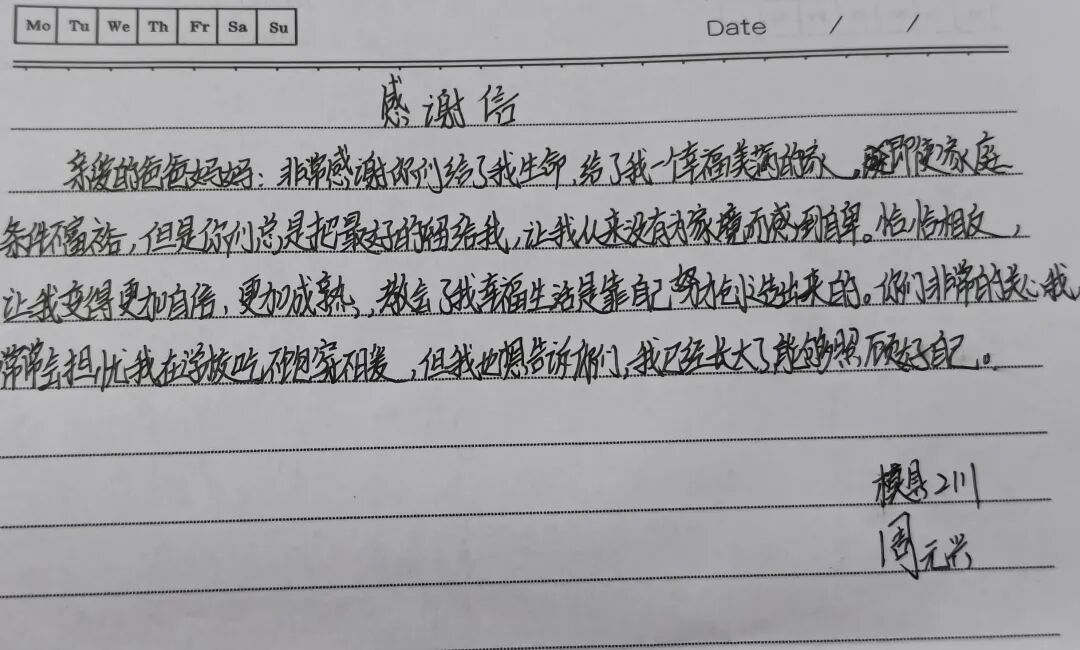 Mo Tu We Th Fr Sa Su Date / /
感谢信
亲爱的爸爸妈妈：非常感谢你们给了我生命，给了我一个幸福美满的家，即使家庭
条件不富裕，但是你们总是把最好的留给我，让我从来没有为家境而感到自卑。恰恰相反，
让我变得更加自信，更加成熟，教会了我幸福生活是靠自己努力创造出来的。你们非常的关心我，
常常会担忧我在学校吃不饱穿不暖，但我也想告诉你们，我已经长大了能够照顾好自己。
模具2111
周元兴